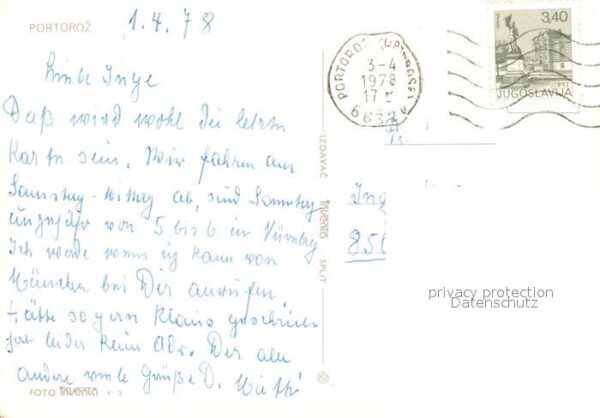 1.4.78
PORTOROŽ
Liebe Inge
Daß wird wohl die letzte
Karte sein. Wir fahren am
Samstag-Mittag ab, sind Sonntag
ungefähr von 5 bis 6 in Nürnberg
Ich werde wenn ich kann von
München bei Dir anrufen
Hätte so gern Klaus geschrieb
hab leider kein Adr. Dir alle
andere viele Grüße D.
FOTO inventa
IZDAVAČ
inventa
SPLIT
PORTOROŽ
3-4
1978
17
6632
3,40
JUGOSLAVIJA
Ing
850
privacy protection
Datenschutz